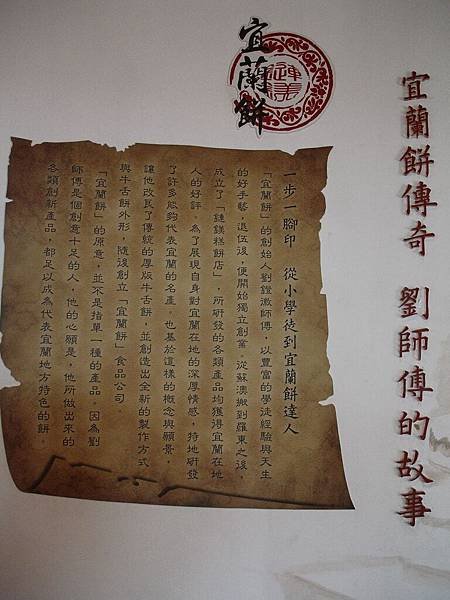 宜蘭餅傳奇 劉師傅的故事
宜蘭餅
連美
一步一腳印 從小學徒到宜蘭餅達人
「宜蘭餅」的創始人劉鐙徽師傅，以豐富的學徒經驗與天生
的好手藝，退伍後，便開始獨立創業。從蘇澳搬到羅東之後，
成立了「鏈鎂糕餅店」，所研發的各類產品均獲得宜蘭在地
人的好評。為了展現自身對宜蘭在地的深厚情感，特地研發
了許多能夠代表宜蘭的名產。也基於這樣的概念與願景，
讓他改良了傳統的厚版牛舌餅，並創造出全新的製作方式
與牛舌餅外形，隨後創立「宜蘭餅」食品公司。
「宜蘭餅」的原意，並不是指單一種的產品。因為劉
師傅是個創意十足的人，他的心願是，他所做出來的
各類創新產品，都足以成為代表宜蘭地方特色的餅。